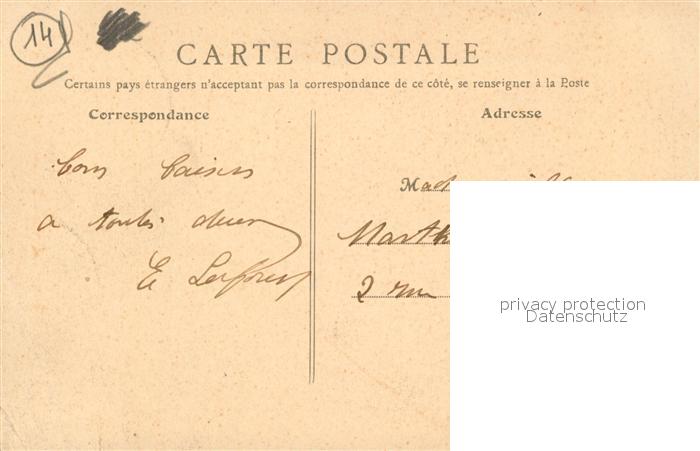 14
CARTE POSTALE
Certains pays étrangers n'acceptant pas la correspondance de ce côté, se renseigner à la Poste
Correspondance
Adresse
bons baisers
a toutes deux
E
Mad
Marth
2 rue
privacy protection
Datenschutz